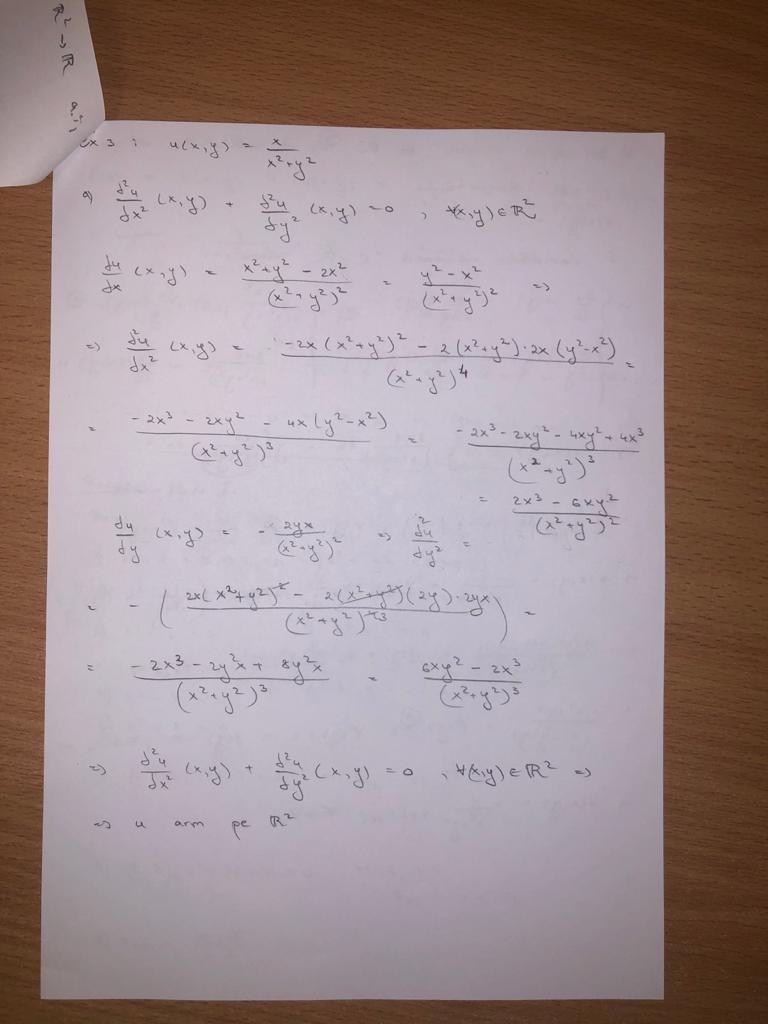 ℝ² → ℝ a.î.
ex 3 : u(x,y) = x/(x²+y²)
a) d²u/dx² (x,y) + d²u/dy² (x,y) = 0 , ∀(x,y) ∈ ℝ²
du/dx (x,y) = (x²+y² - 2x²)/(x²+y²)² = (y² - x²)/(x²+y²)² =>
=> d²u/dx² (x,y) = (-2x(x²+y²)² - 2(x²+y²)·2x(y²-x²))/(x²+y²)⁴ =
= (-2x³ - 2xy² - 4x(y²-x²))/(x²+y²)³ = (-2x³ - 2xy² - 4xy² + 4x³)/(x²+y²)³
= (2x³ - 6xy²)/(x²+y²)²
du/dy (x,y) = - 2yx/(x²+y²)² => d²u/dy² =
= - ( (2x(x²+y²)² - 2(x²+y²)(2y)·2yx)/(x²+y²)⁴³ ) =
= (-2x³ - 2y²x + 8y²x)/(x²+y²)³ = (6xy² - 2x³)/(x²+y²)³
=> d²u/dx² (x,y) + d²u/dy² (x,y) = 0 , ∀(x,y) ∈ ℝ² =>
=> u arm pe ℝ²